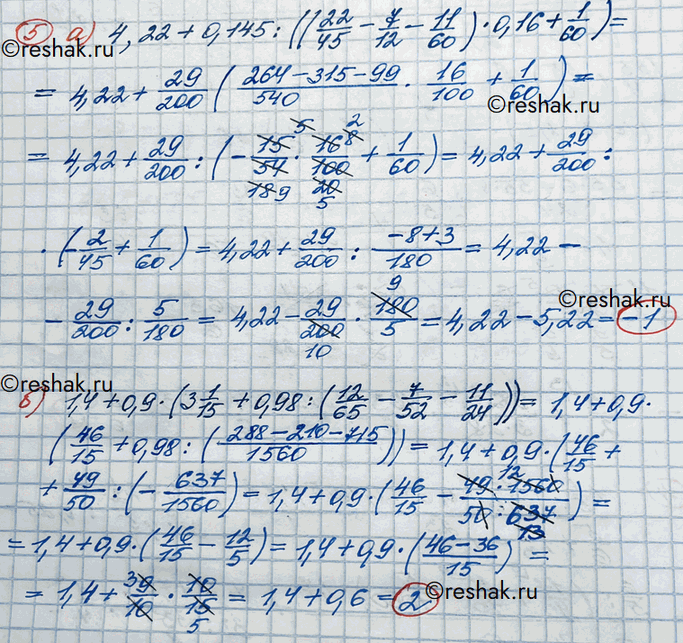 ©reshak.ru
5 а) 4,22 + 0,145 : ((22/45 - 7/12 - 11/60) · 0,16 + 1/60) =
= 4,22 + 29/200 ( (264 - 315 - 99)/540 · 16/100 + 1/60 ) =
©reshak.ru
= 4,22 + 29/200 : (- 15/54 · 16/100 + 1/60) = 4,22 + 29/200 :
5 2 8
18 9 20 5
· (- 2/45 + 1/60) = 4,22 + 29/200 : (-8+3)/180 = 4,22 -
- 29/200 : 5/180 = 4,22 - 29/200 · 180/5 = 4,22 - 5,22 = -1
9
10
©reshak.ru
©reshak.ru
б) 1,4 + 0,9 · (3 1/15 + 0,98 : (12/65 - 7/52 - 11/24)) = 1,4 + 0,9 ·
(46/15 + 0,98 : ((288 - 210 - 715)/1560)) = 1,4 + 0,9 · (46/15 +
+ 49/50 : (- 637/1560) = 1,4 + 0,9 · (46/15 - 49 · 1560/50 : 637) =
12
13
= 1,4 + 0,9 · (46/15 - 12/5) = 1,4 + 0,9 · (46 - 36/15) =
= 1,4 + 39/10 · 10/15 = 1,4 + 0,6 = 2
5
©reshak.ru